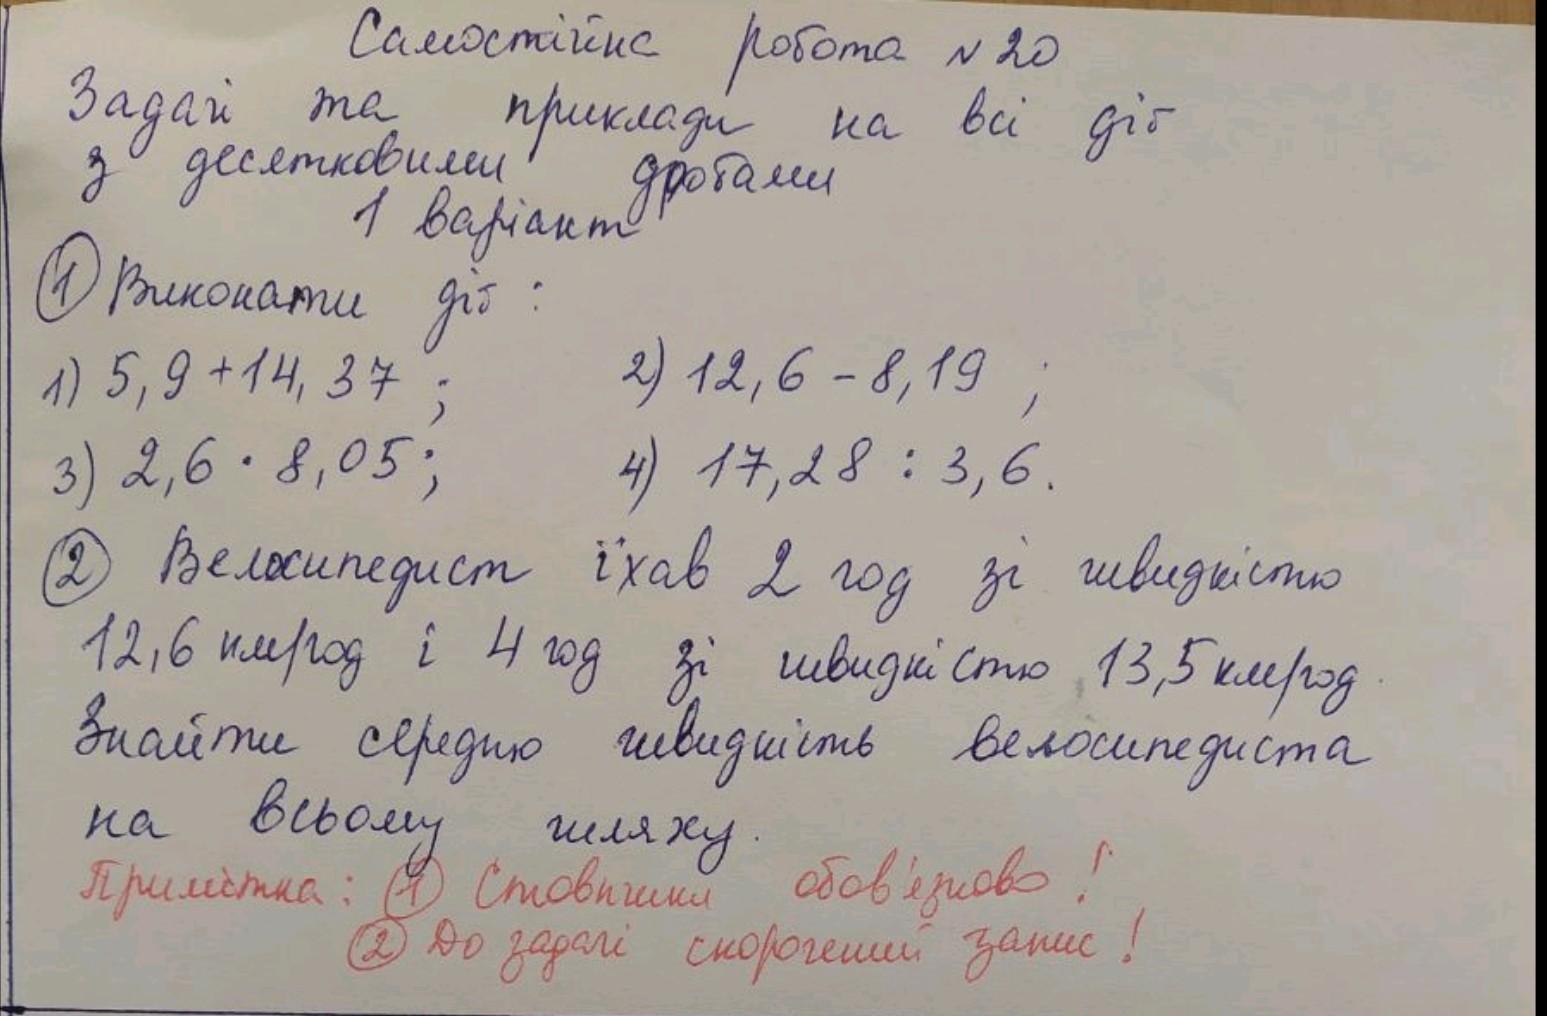 Самостійна робота №20
Задачі та приклади на всі дії
з десятковими дробами
1 варіант
① Виконати дії:
1) 5,9+14,37; 2) 12,6-8,19;
3) 2,6·8,05; 4) 17,28:3,6.
② Велосипедист їхав 2 год зі швидкістю
12,6 км/год і 4 год зі швидкістю 13,5 км/год.
Знайти середню швидкість велосипедиста
на всьому шляху.
Примітка: ① Стовпчики обов'язково!
② До задачі скорочений запис!